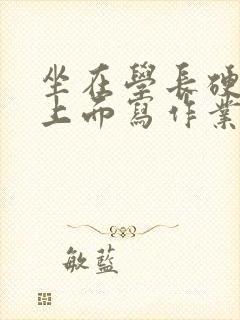 坐在學長硬
上面寫作業
敏藍